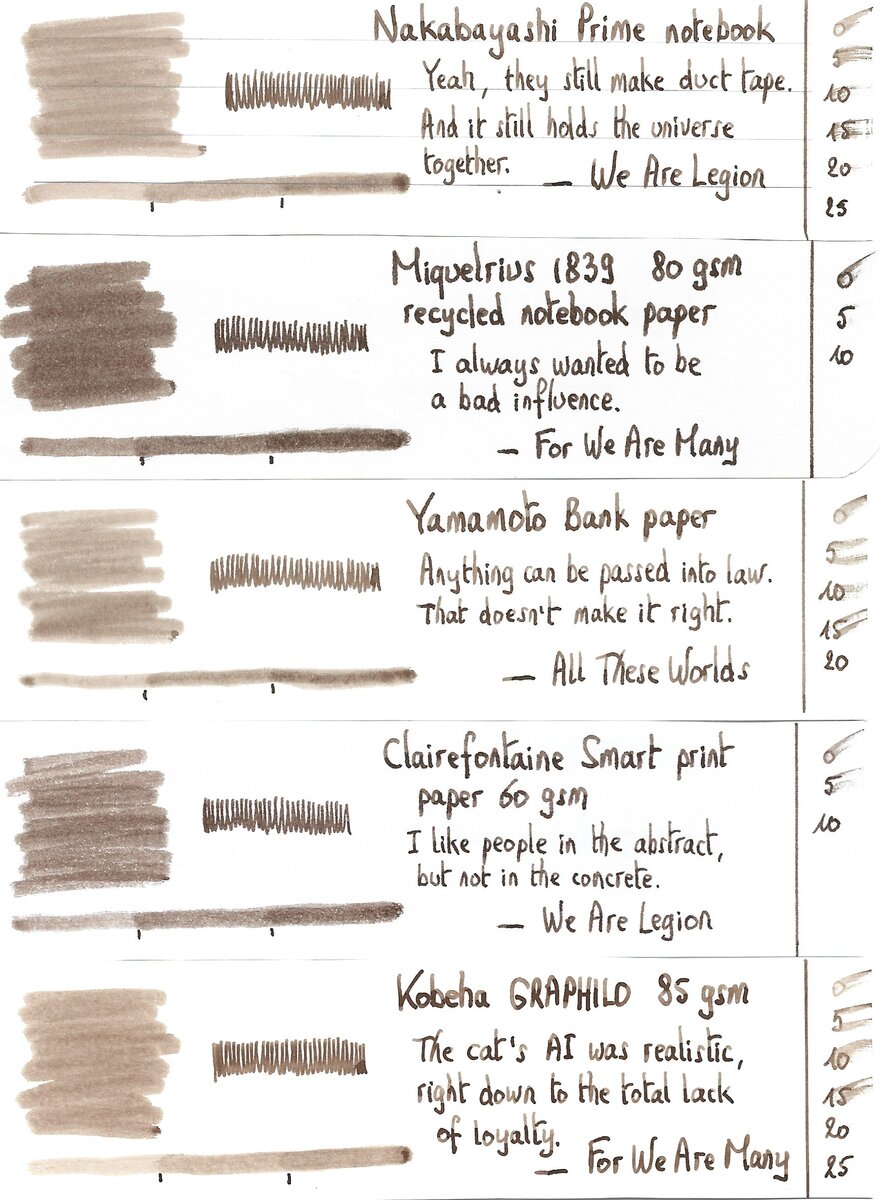 Nakabayashi Prime notebook
Yeah, they still make duct tape.
And it still holds the universe
together.
— We Are Legion
0
5
10
15
20
25
Miquelrius 1839 80 gsm
recycled notebook paper
I always wanted to be
a bad influence.
— For We Are Many
0
5
10
Yamamoto Bank paper
Anything can be passed into law.
That doesn't make it right.
— All These Worlds
0
5
10
15
20
Clairefontaine Smart print
paper 60 gsm
I like people in the abstract,
but not in the concrete.
— We Are Legion
0
5
10
Kobeha GRAPHILO 85 gsm
The cat's AI was realistic,
right down to the total lack
of loyalty.
— For We Are Many
0
5
10
15
20
25